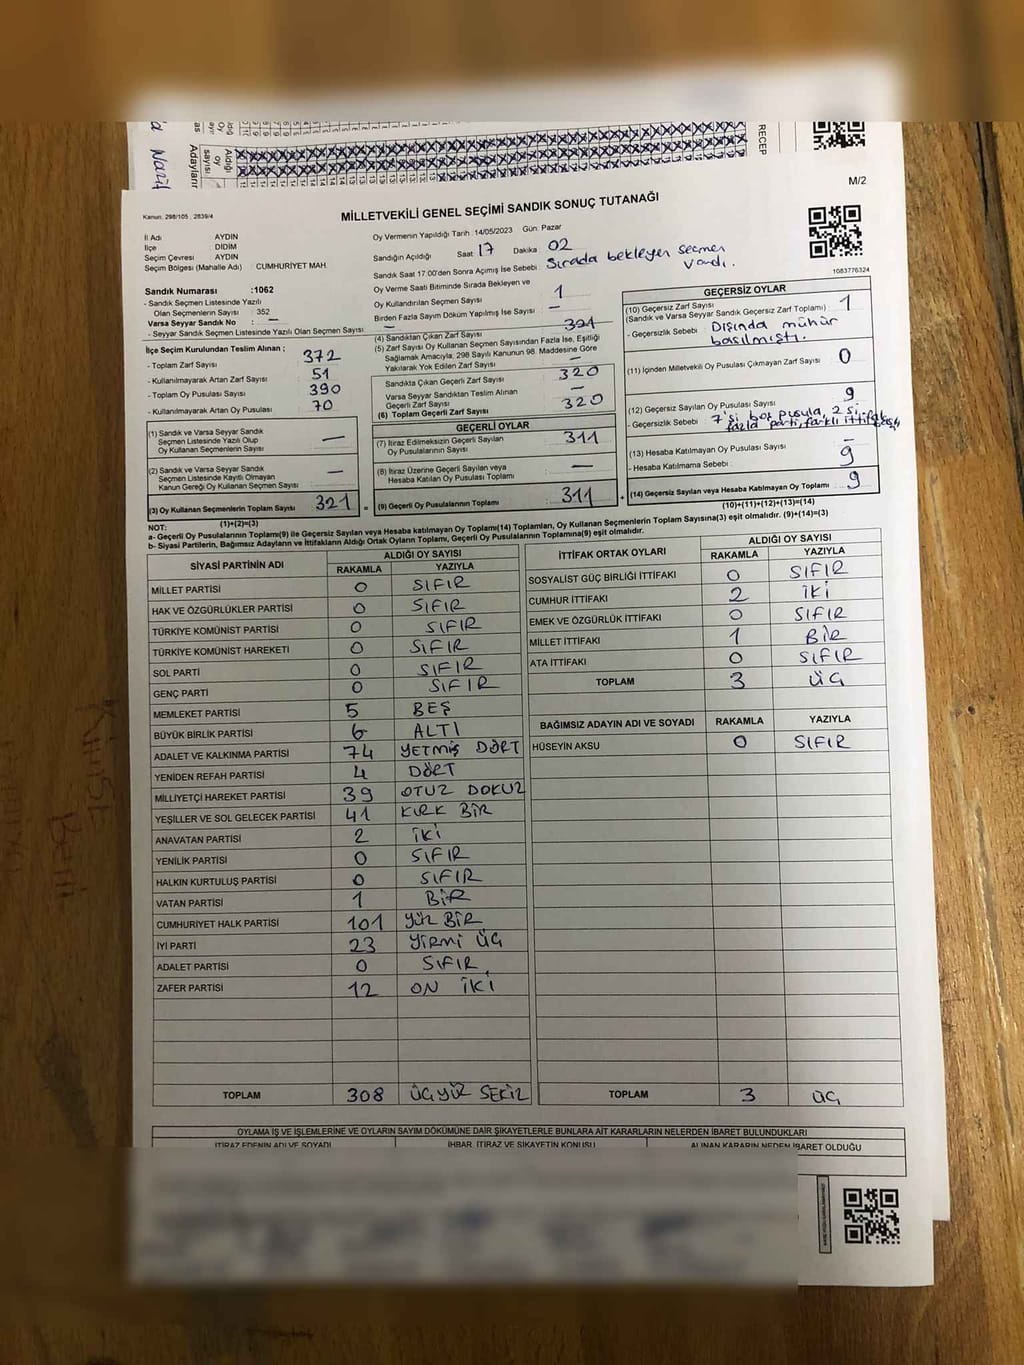 Adayların
Aldığı
oy
sayısı
RECEP
M/2
Kanun: 298/105 , 2839/4
MİLLETVEKİLİ GENEL SEÇİMİ SANDIK SONUÇ TUTANAĞI
İl Adı AYDIN
İlçe DİDİM
Seçim Çevresi AYDIN
Seçim Bölgesi (Mahalle Adı) CUMHURİYET MAH.
Oy Vermenin Yapıldığı Tarih : 14/05/2023 Gün: Pazar
Sandığın Açıldığı Saat : 17 Dakika : 02
Sandık Saat 17.00'den Sonra Açımış İse Sebebi : Sırada bekleyen seçmen
vardı.
1083776324
Sandık Numarası :1062
- Sandık Seçmen Listesinde Yazılı
Olan Seçmenlerin Sayısı : 352
Varsa Seyyar Sandık No : –
- Seyyar Sandık Seçmen Listesinde Yazılı Olan Seçmen Sayısı: –
Oy Verme Saati Bitiminde Sırada Bekleyen ve
Oy Kullandırılan Seçmen Sayısı : 1
Birden Fazla Sayım Döküm Yapılmış İse Sayısı : –
İlçe Seçim Kurulundan Teslim Alınan ;
- Toplam Zarf Sayısı : 372
- Kullanılmayarak Artan Zarf Sayısı : 51
- Toplam Oy Pusulası Sayısı : 390
- Kullanılmayarak Artan Oy Pusulası : 70
(1) Sandık ve Varsa Seyyar Sandık
Seçmen Listesinde Yazılı Olup
Oy Kullanan Seçmenlerin Sayısı : –
(2) Sandık ve Varsa Seyyar Sandık
Seçmen Listesinde Kayıtlı Olmayan
Kanun Gereği Oy Kullanan Seçmen Sayısı : –
(3) Oy Kullanan Seçmenlerin Toplam Sayısı : 321
(1)+(2)=(3)
(4) Sandıktan Çıkan Zarf Sayısı : 321
(5) Zarf Sayısı Oy Kullanan Seçmen Sayısından Fazla İse, Eşitliği
Sağlamak Amacıyla, 298 Sayılı Kanunun 98. Maddesine Göre
Yakılarak Yok Edilen Zarf Sayısı : –
Sandıkta Çıkan Geçerli Zarf Sayısı : 320
Varsa Seyyar Sandıktan Teslim Alınan
Geçerli Zarf Sayısı : –
(6) Toplam Geçerli Zarf Sayısı : 320
GEÇERLİ OYLAR
(7) İtiraz Edilmeksizin Geçerli Sayılan
Oy Pusulalarının Sayısı : 311
(8) İtiraz Üzerine Geçerli Sayılan veya
Hesaba Katılan Oy Pusulası Toplamı : –
= (9) Geçerli Oy Pusulalarının Toplamı : 311 +
GEÇERSİZ OYLAR
(10) Geçersiz Zarf Sayısı : 1
(Sandık ve Varsa Seyyar Sandık Geçersiz Zarf Toplamı)
- Geçersizlik Sebebi : Dışında mühür
basılmıştı.
(11) İçinden Milletvekili Oy Pusulası Çıkmayan Zarf Sayısı : 0
(12) Geçersiz Sayılan Oy Pusulası Sayısı : 9
- Geçersizlik Sebebi : 7'si boş pusula, 2'si
fazla parti, farklı ittifak
(13) Hesaba Katılmayan Oy Pusulası Sayısı : –
- Hesaba Katılmama Sebebi : 9
(14) Geçersiz Sayılan veya Hesaba Katılmayan Oy Toplamı : 9
(10)+(11)+(12)+(13)=(14)
NOT:
a- Geçerli Oy Pusulalarının Toplamı(9) ile Geçersiz Sayılan veya Hesaba katılmayan Oy Toplamı(14) Toplamları, Oy Kullanan Seçmenlerin Toplam Sayısına(3) eşit olmalıdır. (9)+(14)=(3)
b- Siyasi Partilerin, Bağımsız Adayların ve İttifakların Aldığı Ortak Oyların Toplamı, Geçerli Oy Pusulalarının Toplamına(9) eşit olmalıdır.
SİYASİ PARTİNİN ADI ALDIĞI OY SAYISI
RAKAMLA YAZIYLA
MİLLET PARTİSİ 0 SIFIR
HAK VE ÖZGÜRLÜKLER PARTİSİ 0 SIFIR
TÜRKİYE KOMÜNİST PARTİSİ 0 SIFIR
TÜRKİYE KOMÜNİST HAREKETİ 0 SIFIR
SOL PARTİ 0 SIFIR
GENÇ PARTİ 0 SIFIR
MEMLEKET PARTİSİ 5 BEŞ
BÜYÜK BİRLİK PARTİSİ 6 ALTI
ADALET VE KALKINMA PARTİSİ 74 YETMİŞ DÖRT
YENİDEN REFAH PARTİSİ 4 DÖRT
MİLLİYETÇİ HAREKET PARTİSİ 39 OTUZ DOKUZ
YEŞİLLER VE SOL GELECEK PARTİSİ 41 KIRK BİR
ANAVATAN PARTİSİ 2 İKİ
YENİLİK PARTİSİ 0 SIFIR
HALKIN KURTULUŞ PARTİSİ 0 SIFIR
VATAN PARTİSİ 1 BİR
CUMHURİYET HALK PARTİSİ 101 YÜZ BİR
İYİ PARTİ 23 YİRMİ ÜÇ
ADALET PARTİSİ 0 SIFIR
ZAFER PARTİSİ 12 ON İKİ
TOPLAM 308 ÜÇYÜZ SEKİZ
İTTİFAK ORTAK OYLARI ALDIĞI OY SAYISI
RAKAMLA YAZIYLA
SOSYALİST GÜÇ BİRLİĞİ İTTİFAKI 0 SIFIR
CUMHUR İTTİFAKI 2 İKİ
EMEK VE ÖZGÜRLÜK İTTİFAKI 0 SIFIR
MİLLET İTTİFAKI 1 BİR
ATA İTTİFAKI 0 SIFIR
TOPLAM 3 ÜÇ
BAĞIMSIZ ADAYIN ADI VE SOYADI RAKAMLA YAZIYLA
HÜSEYİN AKSU 0 SIFIR
TOPLAM 3 ÜÇ
OYLAMA İŞ VE İŞLEMLERİNE VE OYLARIN SAYIM DÖKÜMÜNE DAİR ŞİKAYETLERLE BUNLARA AİT KARARLARIN NELERDEN İBARET BULUNDUKLARI
İTİRAZ EDENİN ADI VE SOYADI İHBAR, İTİRAZ VE ŞİKAYETİN KONUSU ALINAN KARARIN NEDEN İBARET OLDUĞU